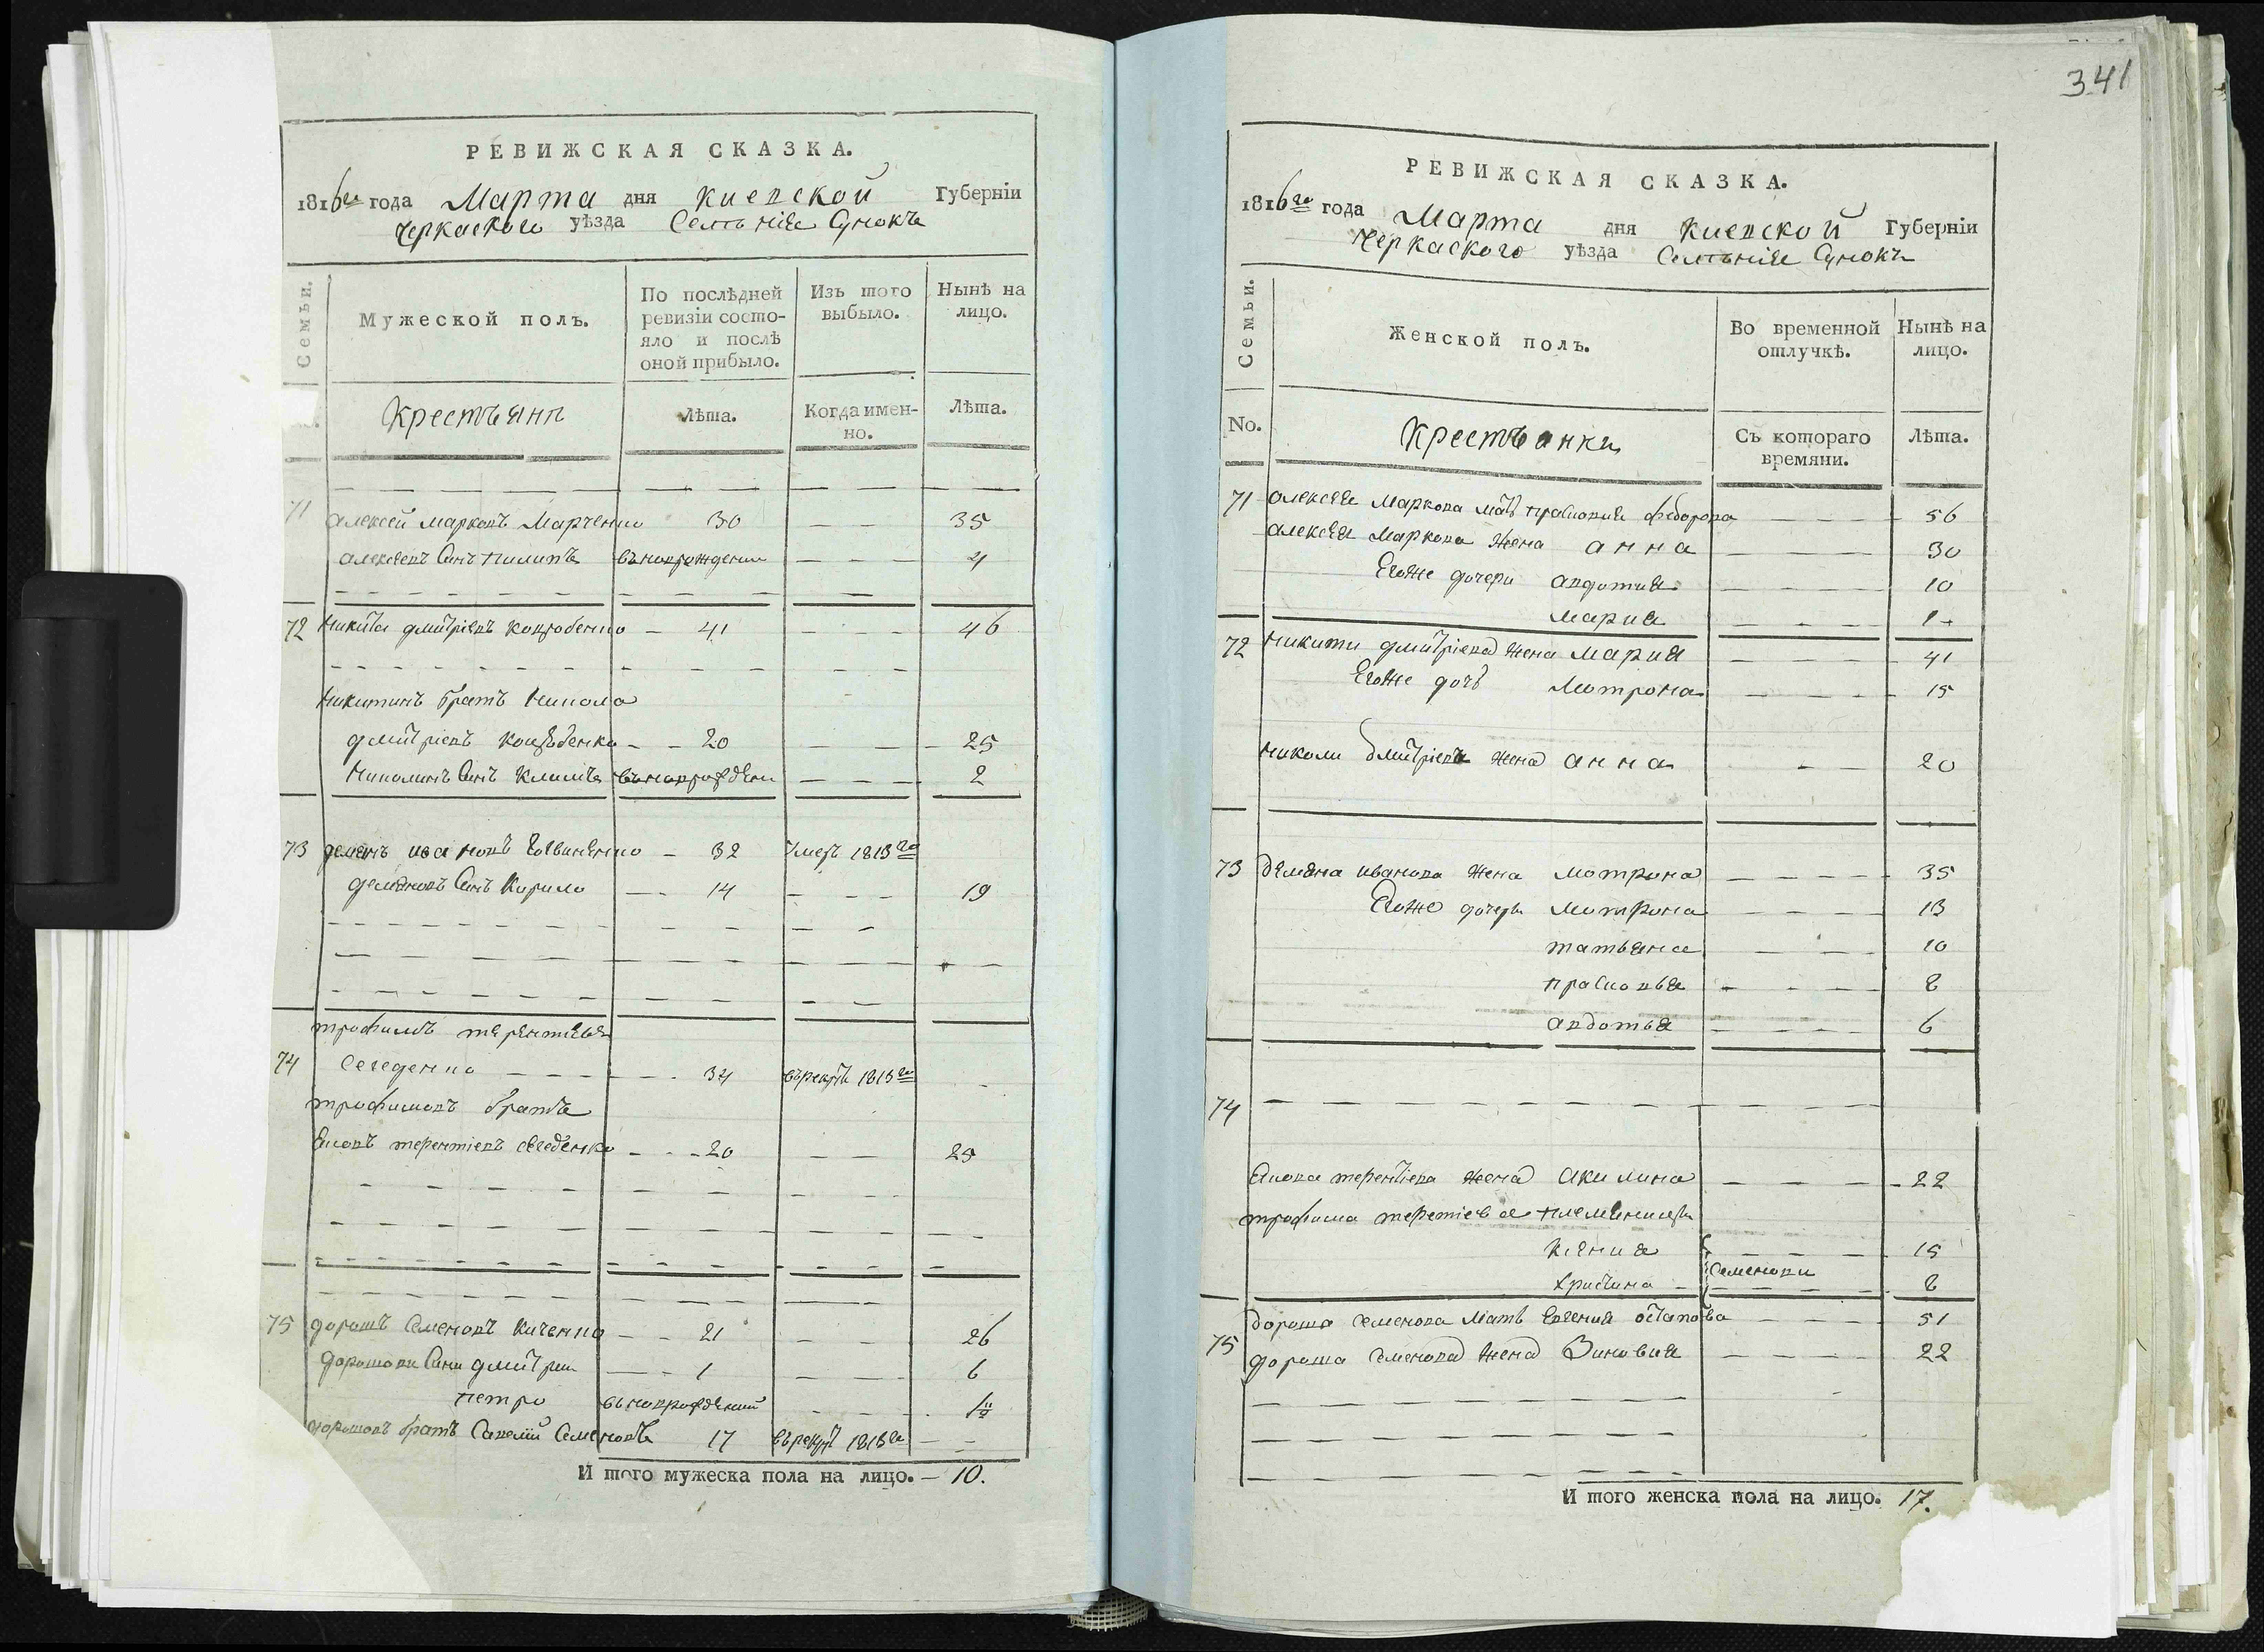 341
РЕВИЖСКАЯ СКАЗКА.
1816го года Марта дня Киевской Губерніи
Черкаского уѣзда Селѣнія Сунокъ
Семьи.
Мужеской полъ.
По послѣдней ревизіи состо-
яло и послѣ
оной прибыло.
Изъ того
выбыло.
Нынѣ на
лицо.
Крестьяне
Лѣта.
Когда имен-
но.
Лѣта.
71 Алексей Марковъ Марченко 30 — 35
Алексеевъ Синъ Пилипъ въноврождении — 4
72 Никита Дмитріевъ — 41 — 46
Никитинъ братъ Никола
Дмитріевъ — 20 — 25
Николинъ Синъ Климъ въноврождени — 2
73 Демянъ Ивановъ — 32 Умеръ 1813го
Демяновъ Синъ Кирило — 14 — 19
Трофимъ Терентіевъ
74 Сегеденко — 34 върекрутъ 1813го
Трофимовъ братъ
Яковъ Терентіевъ Сегеденко — 20 — 25
75 Дорошъ Семеновъ Киченко — 21 — 26
Дорошови Сини Дмитри — 1 — 6
Петро въноврождений — 1½
Дорошовъ братъ Савелій Семеновъ 17 върекрутъ 1813го —
И того мужеска пола на лицо. — 10.
РЕВИЖСКАЯ СКАЗКА.
1816го года Марта дня Киевской Губерніи
Черкаского уѣзда Селѣнія Сунокъ
Семьи.
Женской полъ.
Во временной
отлучкѣ.
Нынѣ на
лицо.
No.
Крестьянки
Съ котораго
времяни.
Лѣта.
71 Алексея Маркова мать Прасковия Федорова — 56
Алексея Маркова жена Анна — 30
Егоже дочери Авдотия — 10
Мария — 1
72 Никити Дмитріева жена Мария — 41
Егоже дочь Мотрона — 15
Николи Дмитріева жена Анна — 20
73 Демяна Иванова жена Мотрона — 35
Егоже дочери Мотрона — 13
Татьяна — 10
Прасковья — 8
Авдотья — 6
74
Якова Терентіева жена Акилина — 22
Трофима Терентіева племеници
Ксения — 15
Семенови
Христина — 8
Дороша Семенова мать Евгения Остапова — 51
75 Дороша Семенова жена Зиновия — 22
И того женска пола на лицо. 17.